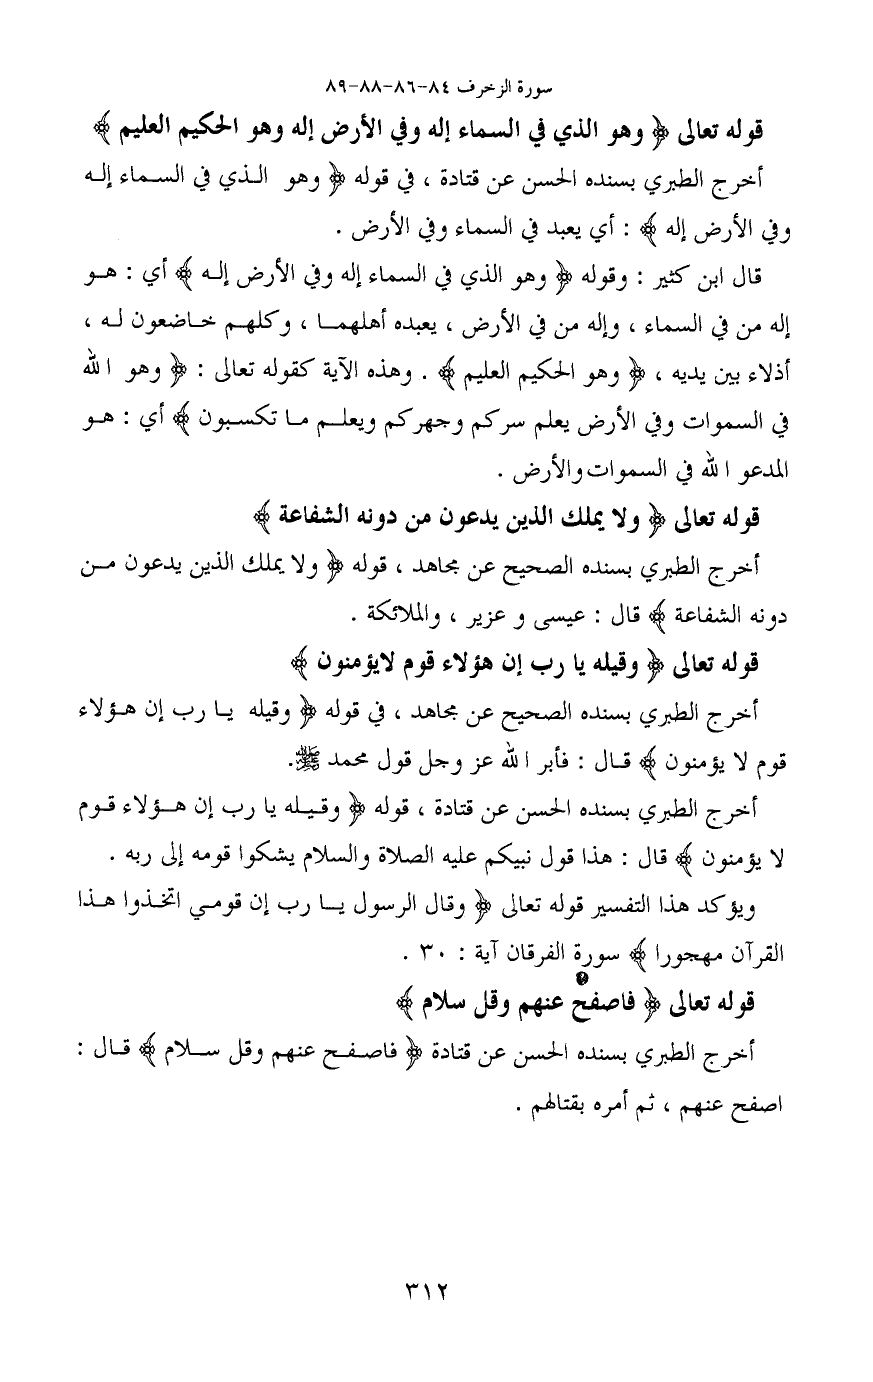 سورة الزخرف ٨٤-٨٦-٨٨-٨٩
قوله تعالى ﴿ وهو الذي في السماء إله وفي الأرض إله وهو الحكيم العليم ﴾
أخرج الطبري بسنده الحسن عن قتادة ، في قوله ﴿ وهو الـذي في السـماء إلـه
وفي الأرض إله ﴾ : أي يعبد في السماء وفي الأرض .
قال ابن كثير : وقوله ﴿ وهو الذي في السماء إله وفي الأرض إلـه ﴾ أي : هـو
إله من في السماء ، وإله من في الأرض ، يعبده أهلهمـا ، وكلهـم خـاضعون لـه ،
أذلاء بين يديه ، ﴿ وهو الحكيم العليم ﴾ . وهذه الآية كقوله تعالى : ﴿ وهو الله
في السموات وفي الأرض يعلم سركم وجهركم ويعلـم مـا تكسـبون ﴾ أي : هـو
المدعو الله في السموات والأرض .
قوله تعالى ﴿ ولا يملك الذين يدعون من دونه الشفاعة ﴾
أخرج الطبري بسنده الصحيح عن مجاهد ، قوله ﴿ ولا يملك الذين يدعون مـن
دونه الشفاعة ﴾ قال : عيسى و عزير ، والملائكة .
قوله تعالى ﴿ وقيله يا رب إن هؤلاء قوم لايؤمنون ﴾
أخرج الطبري بسنده الصحيح عن مجاهد ، في قوله ﴿ وقيله يـا رب إن هـؤلاء
قوم لا يؤمنون ﴾ قـال : فأبر الله عز وجل قول محمد ﷺ.
أخرج الطبري بسنده الحسن عن قتادة ، قوله ﴿ وقـيـله يا رب إن هـؤلاء قـوم
لا يؤمنون ﴾ قال : هذا قول نبيكم عليه الصلاة والسلام يشكوا قومه إلى ربه .
ويؤكد هذا التفسير قوله تعالى ﴿ وقال الرسول يـا رب إن قومـي اتخـذوا هـذا
القرآن مهجورا ﴾ سورة الفرقان آية : ٣٠ .
قوله تعالى ﴿ فاصفح عنهم وقل سلام ﴾
أخرج الطبري بسنده الحسن عن قتادة ﴿ فاصـفـح عنهم وقل سـلام ﴾ قـال :
اصفح عنهم ، ثم أمره بقتالهم .
٣١٢